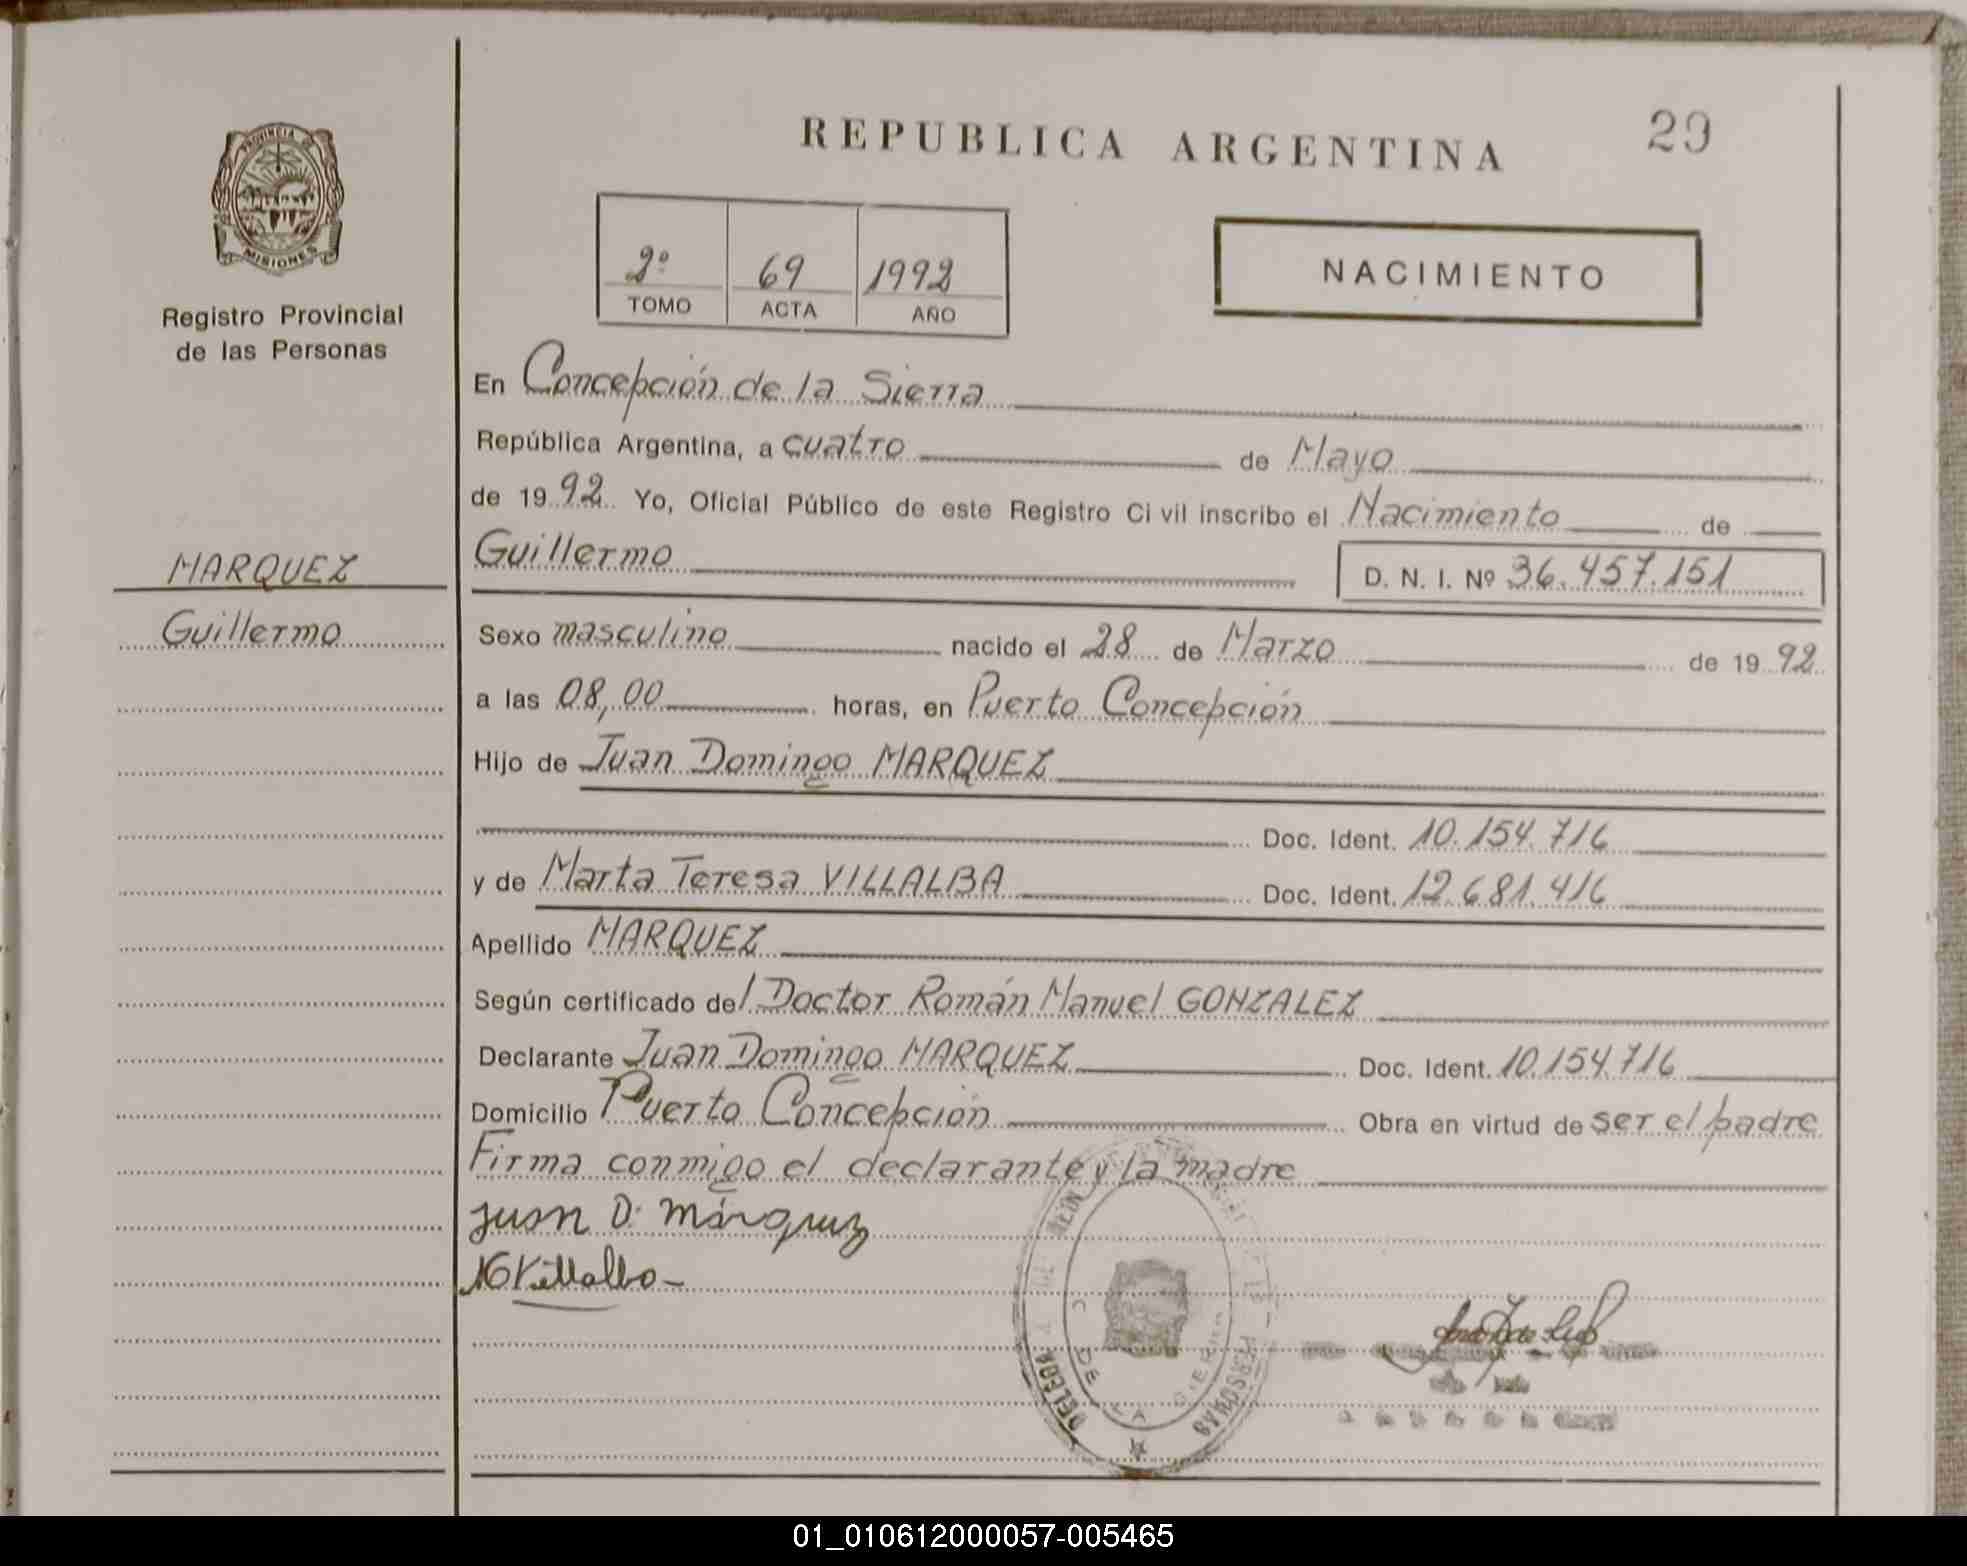 REPUBLICA ARGENTINA
29
PROVINCIA
MISIONES
Registro Provincial
de las Personas
2º 69 1992
TOMO ACTA AÑO
NACIMIENTO
En Concepción de la Sierra
República Argentina, a cuatro de Mayo
de 1992 Yo, Oficial Público de este Registro Civil inscribo el Nacimiento de
MARQUEZ
Guillermo D. N. I. Nº 36.457.151
Guillermo
Sexo masculino nacido el 28 de Marzo de 1992
a las 08,00 horas, en Puerto Concepción
Hijo de Juan Domingo MARQUEZ
Doc. Ident. 10.154.716
y de Marta Teresa VILLALBA Doc. Ident. 12.681.416
Apellido MARQUEZ
Según certificado del Doctor Román Manuel GONZALEZ
Declarante Juan Domingo MARQUEZ Doc. Ident. 10.154.716
Domicilio Puerto Concepción Obra en virtud de ser el padre
Firma conmigo el declarante y la madre
Juan D. Márquez
Villalba
PERSONAS
DE LA
01_010612000057-005465